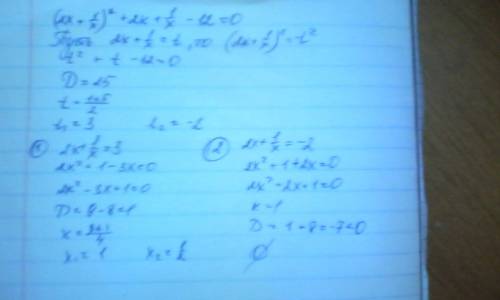 (2x + 1/x)² + 2x + 1/x - 12 = 0
Пусть 2x + 1/x = t, то (2x + 1/x)² = t²
t² + t - 12 = 0
D = 25
t₁ = 3 t₂ = -2
① 2x + 1/x = 3
2x² + 1 - 3x = 0
2x² - 3x + 1 = 0
D = 9 - 8 = 1
x₁ = 1 x₂ = 1/2
② 2x + 1/x = -2
2x² + 1 + 2x = 0
2x² - 2x + 1 = 0
k = 1
D = 1 - 8 = -7 < 0
∅